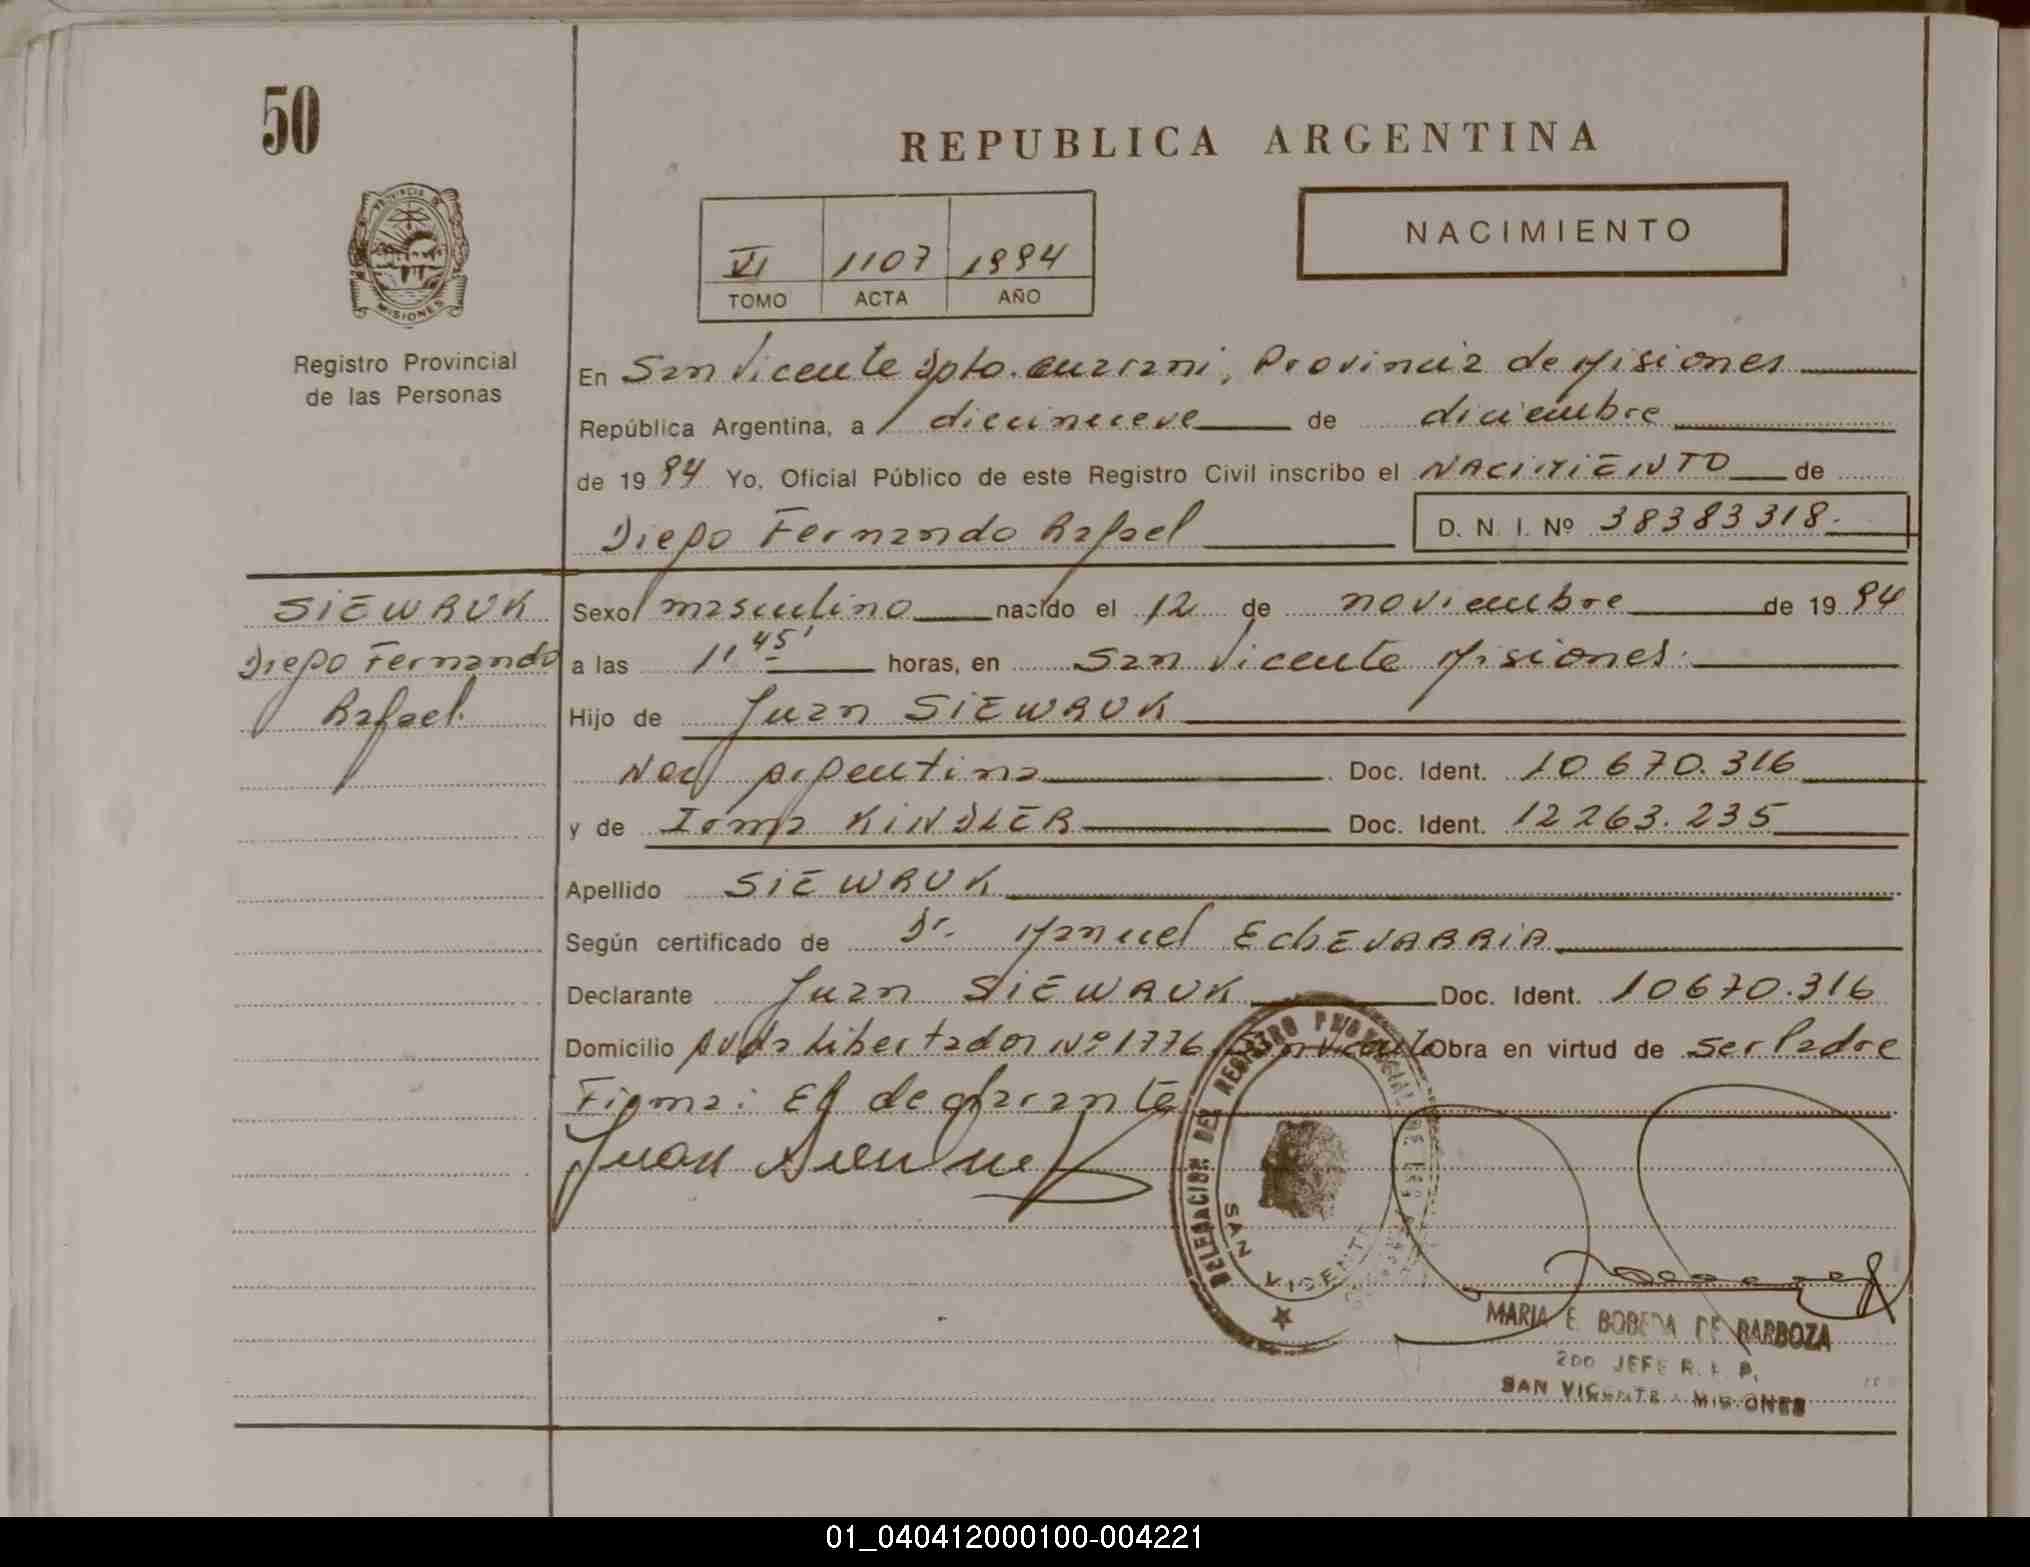 50
REPUBLICA ARGENTINA
PROVINCIA DE
MISIONES
NACIMIENTO
VI 1107 1994
TOMO ACTA AÑO
Registro Provincial
de las Personas
En San Vicente Dpto. Guarani, Provincia de Misiones
República Argentina, a diecinueve de diciembre
de 1994 Yo, Oficial Público de este Registro Civil inscribo el NACIMIENTO de
Diego Fernando Rafael D. N. I. Nº 38383318.
SIEWRUK
Diego Fernando
Rafael.
Sexo masculino nacido el 12 de noviembre de 1994
a las 11 45' horas, en San Vicente Misiones.
Hijo de Juan SIEWRUK
Nac argentina Doc. Ident. 10 670.316
y de Irma KINDLER Doc. Ident. 12 263.235
Apellido SIEWRUK
Según certificado de Dr. Manuel EchEVARRIA
Declarante Juan SIEWRUK Doc. Ident. 10670.316
Domicilio Avda Libertador Nº 1776 San Vicente Obra en virtud de ser Padre
Firma: El declarante
Juan
DELEGACION DEL REGISTRO PROVINCIAL DE LAS
SAN VICENTE
MARIA E. BOBEDA DE BARBOZA
2DO JEFE R. P.
SAN VICENTE - MISIONES
01_040412000100-004221